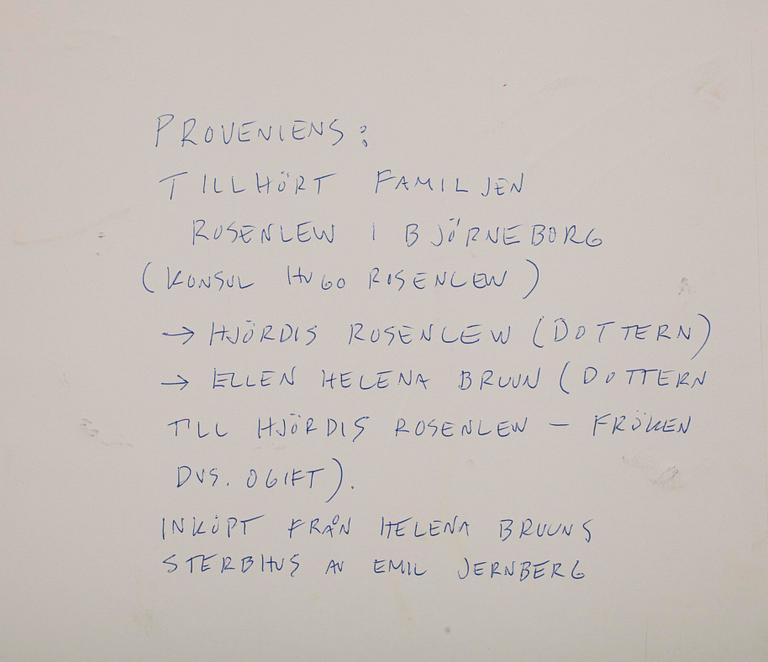 PROVENIENS:
TILLHÖRT FAMILJEN
ROSENLEW I BJÖRNEBORG
(KONSUL HUGO ROSENLEW)
→ HJÖRDIS ROSENLEW (DOTTERN)
→ ELLEN HELENA BRUUN (DOTTERN
TILL HJÖRDIS ROSENLEW – FRÖKEN
DVS. OGIFT).
INKÖPT FRÅN HELENA BRUUNS
STERBHUS AV EMIL JERNBERG